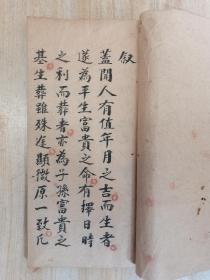 叙
蓋聞人有值年月之吉而生者
遂為平生富貴之命有擇日時
之利而葬者亦為子孫富貴之
基生葬雖殊途顯微原一致凡